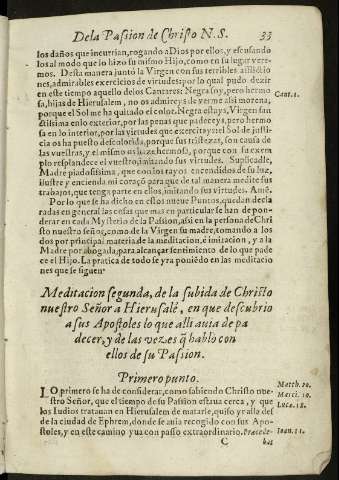 De la Passion de Christo N. S. 33
los daños que incurrian, rogando a Dios por ellos, y escusando
los al modo que lo hizo su mismo Hijo, como en su lugar vere-
mos. Desta manera juntò la Virgen con sus terribles afflictio
nes, admirables exercicios de virtudes: por lo qual pudo dezir
en este tiempo aquello delos Cantares: Negra soy, pero hermo
sa, hijas de Hierusalem, no os admireys de verme assi morena, Cant. 1.
porque el Sol me ha quitado el color. Negra estays, Virgen san
ctissima en lo exterior, por las penas que padeceys, pero hermo
sa en lo interior, por las virtudes que exercitays: el Sol de justi-
cia os ha puesto descolorida, porque sus tristezas, son causa de
las vuestras, y el mismo os haze hermosa, porque con su exem
plo resplandece el vuestro, imitando sus virtudes. Suplicadle,
Madre piadosissima, que con los rayos encendidos de su luz,
ilustre y encienda mi coraçõ para que de tal manera medite sus
trabajos, que tenga parte en ellos, imitando sus virtudes. Amē.
Por lo que se ha dicho en estos nueue Puntos, quedan decla
radas en general las cosas que mas en particular se han de pon-
derar en cada Mysterio de la Passion, assi en la persona de Chri
sto nuestro señor, como de la Virgen su madre, tomando a los
dos por principal materia de la meditacion, è imitacion, y a la
Madre por abogada, para alcançar sentimiento de lo que pade
ce el Hijo. La pratica de todo se yra poniēdo en las meditacio
nes que se siguen.
Meditacion segunda, de la subida de Christo
nuestro Señor a Hierusalē, en que descubrio
a sus Apostoles lo que alli auia de pa
decer, y de las vezes q̃ hablo con
ellos de su Passion.
Primero punto.
LO primero se ha de considerar, como sabiendo Christo nue- Matth. 20.
stro Señor, que el tiempo de su Passion estaua cerca, y que Marci. 10.
los Iudios tratauan en Hierusalem de matarle, quiso yr alla des Luc. 18.
de la ciudad de Ephrem, donde se auia recogido con sus Apo-
stoles, y en este camino yua con passo extraordinario. Precede- Ioan. 11.
C bas